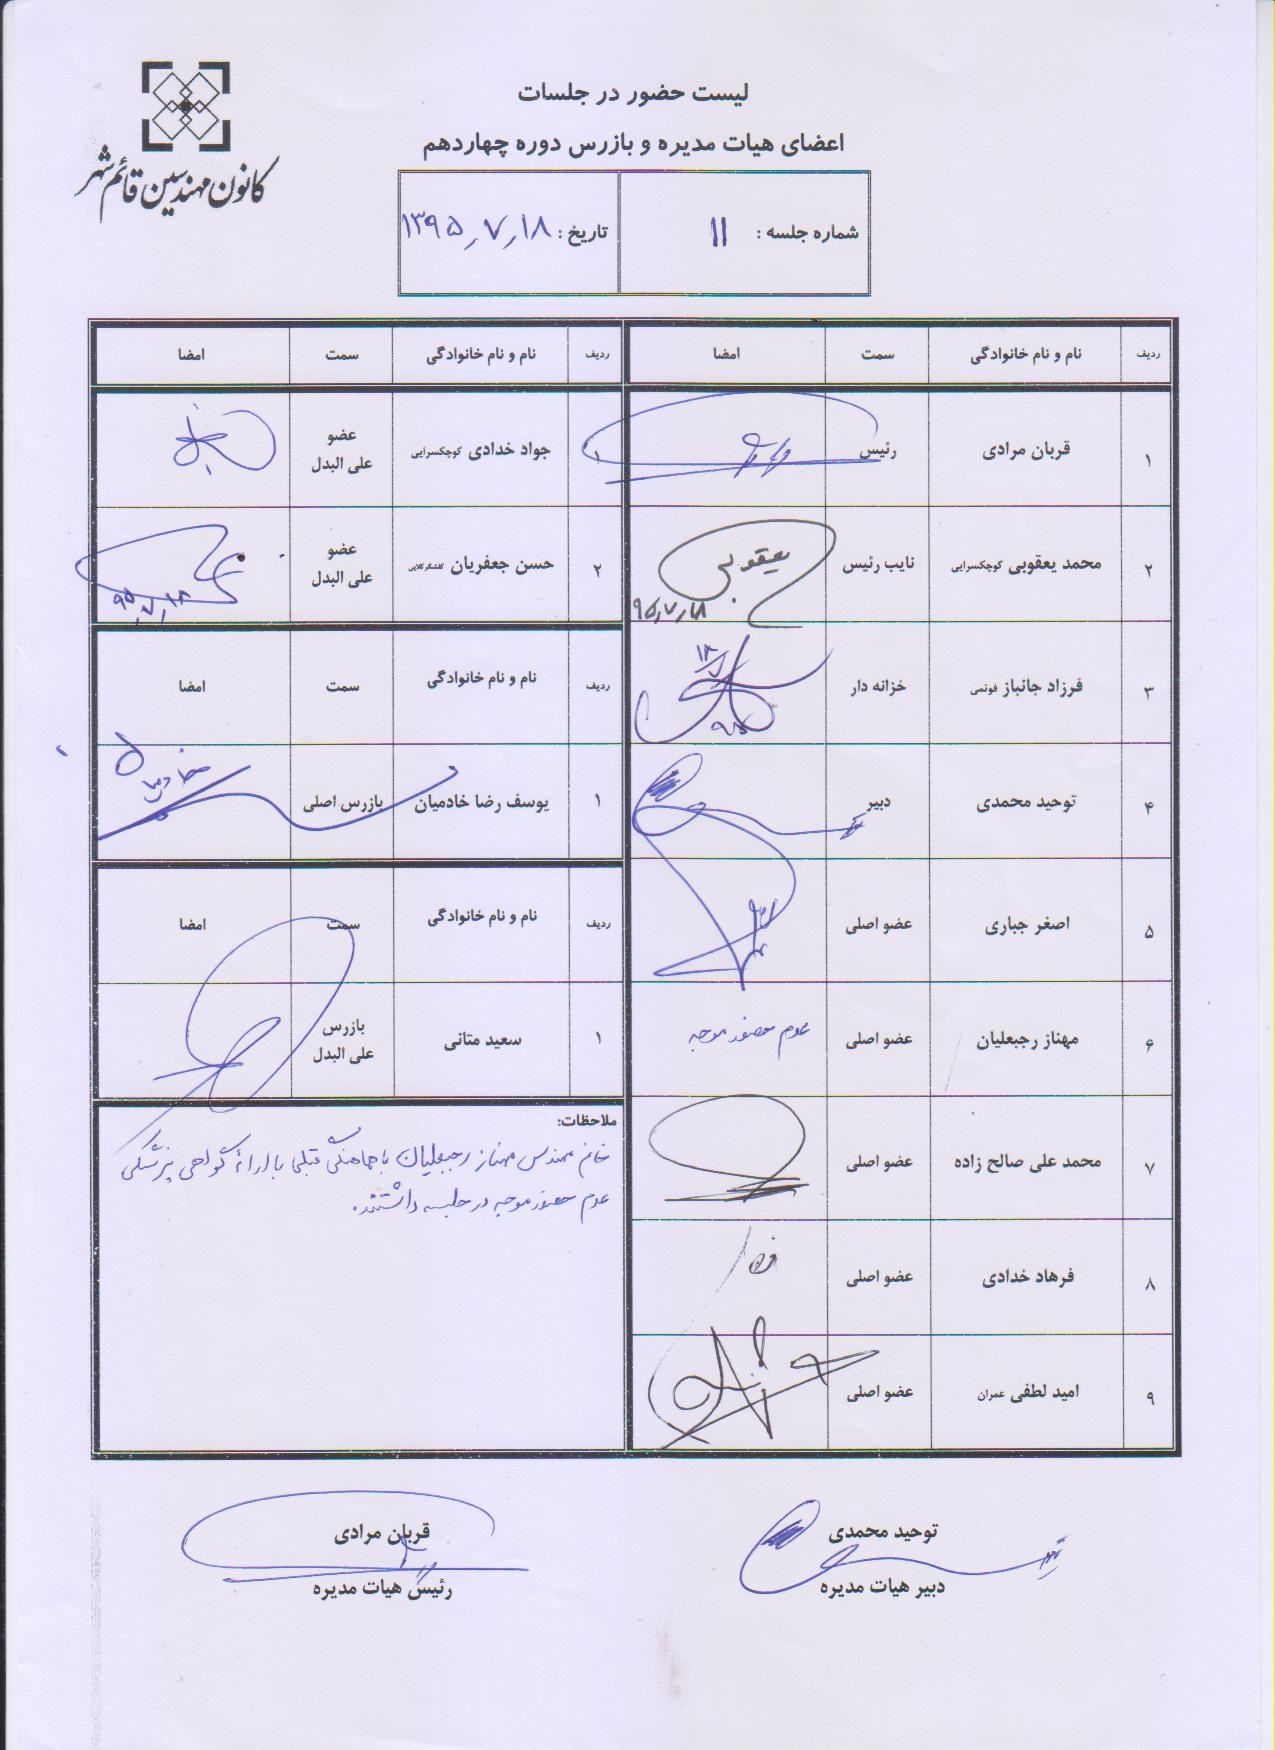 کانون مهندسین قائم شهر
لیست حضور در جلسات
اعضای هیات مدیره و بازرس دوره چهاردهم
شماره جلسه : ۱۱
تاریخ : ۱۳۹۵٫۷٫۱۸
ردیف نام و نام خانوادگی سمت امضا
۱ قربان مرادی رئیس
۲ محمد یعقوبی کوچکسرایی نایب رئیس یعقوبی ۹۵٫۷٫۱۸
۳ فرزاد جانباز فوتمی خزانه دار
۴ توحید محمدی دبیر
۵ اصغر جباری عضو اصلی
۶ مهناز رجبعلیان عضو اصلی عدم حضور موجه
۷ محمد علی صالح زاده عضو اصلی
۸ فرهاد خدادی عضو اصلی
۹ امید لطفی عمران عضو اصلی
ردیف نام و نام خانوادگی سمت امضا
۱ جواد خدادی کوچکسرایی عضو علی البدل
۲ حسن جعفریان عضو علی البدل ۹۵٫۷٫۱۸
ردیف نام و نام خانوادگی سمت امضا
۱ یوسف رضا خادمیان بازرس اصلی
ردیف نام و نام خانوادگی سمت امضا
۱ سعید متانی بازرس علی البدل
ملاحظات:
خانم مهندس مهناز رجبعلیان با هماهنگی قبلی با ارائه گواهی پزشکی
عدم حضور موجه در جلسه داشتند.
توحید محمدی
دبیر هیات مدیره
قربان مرادی
رئیس هیات مدیره